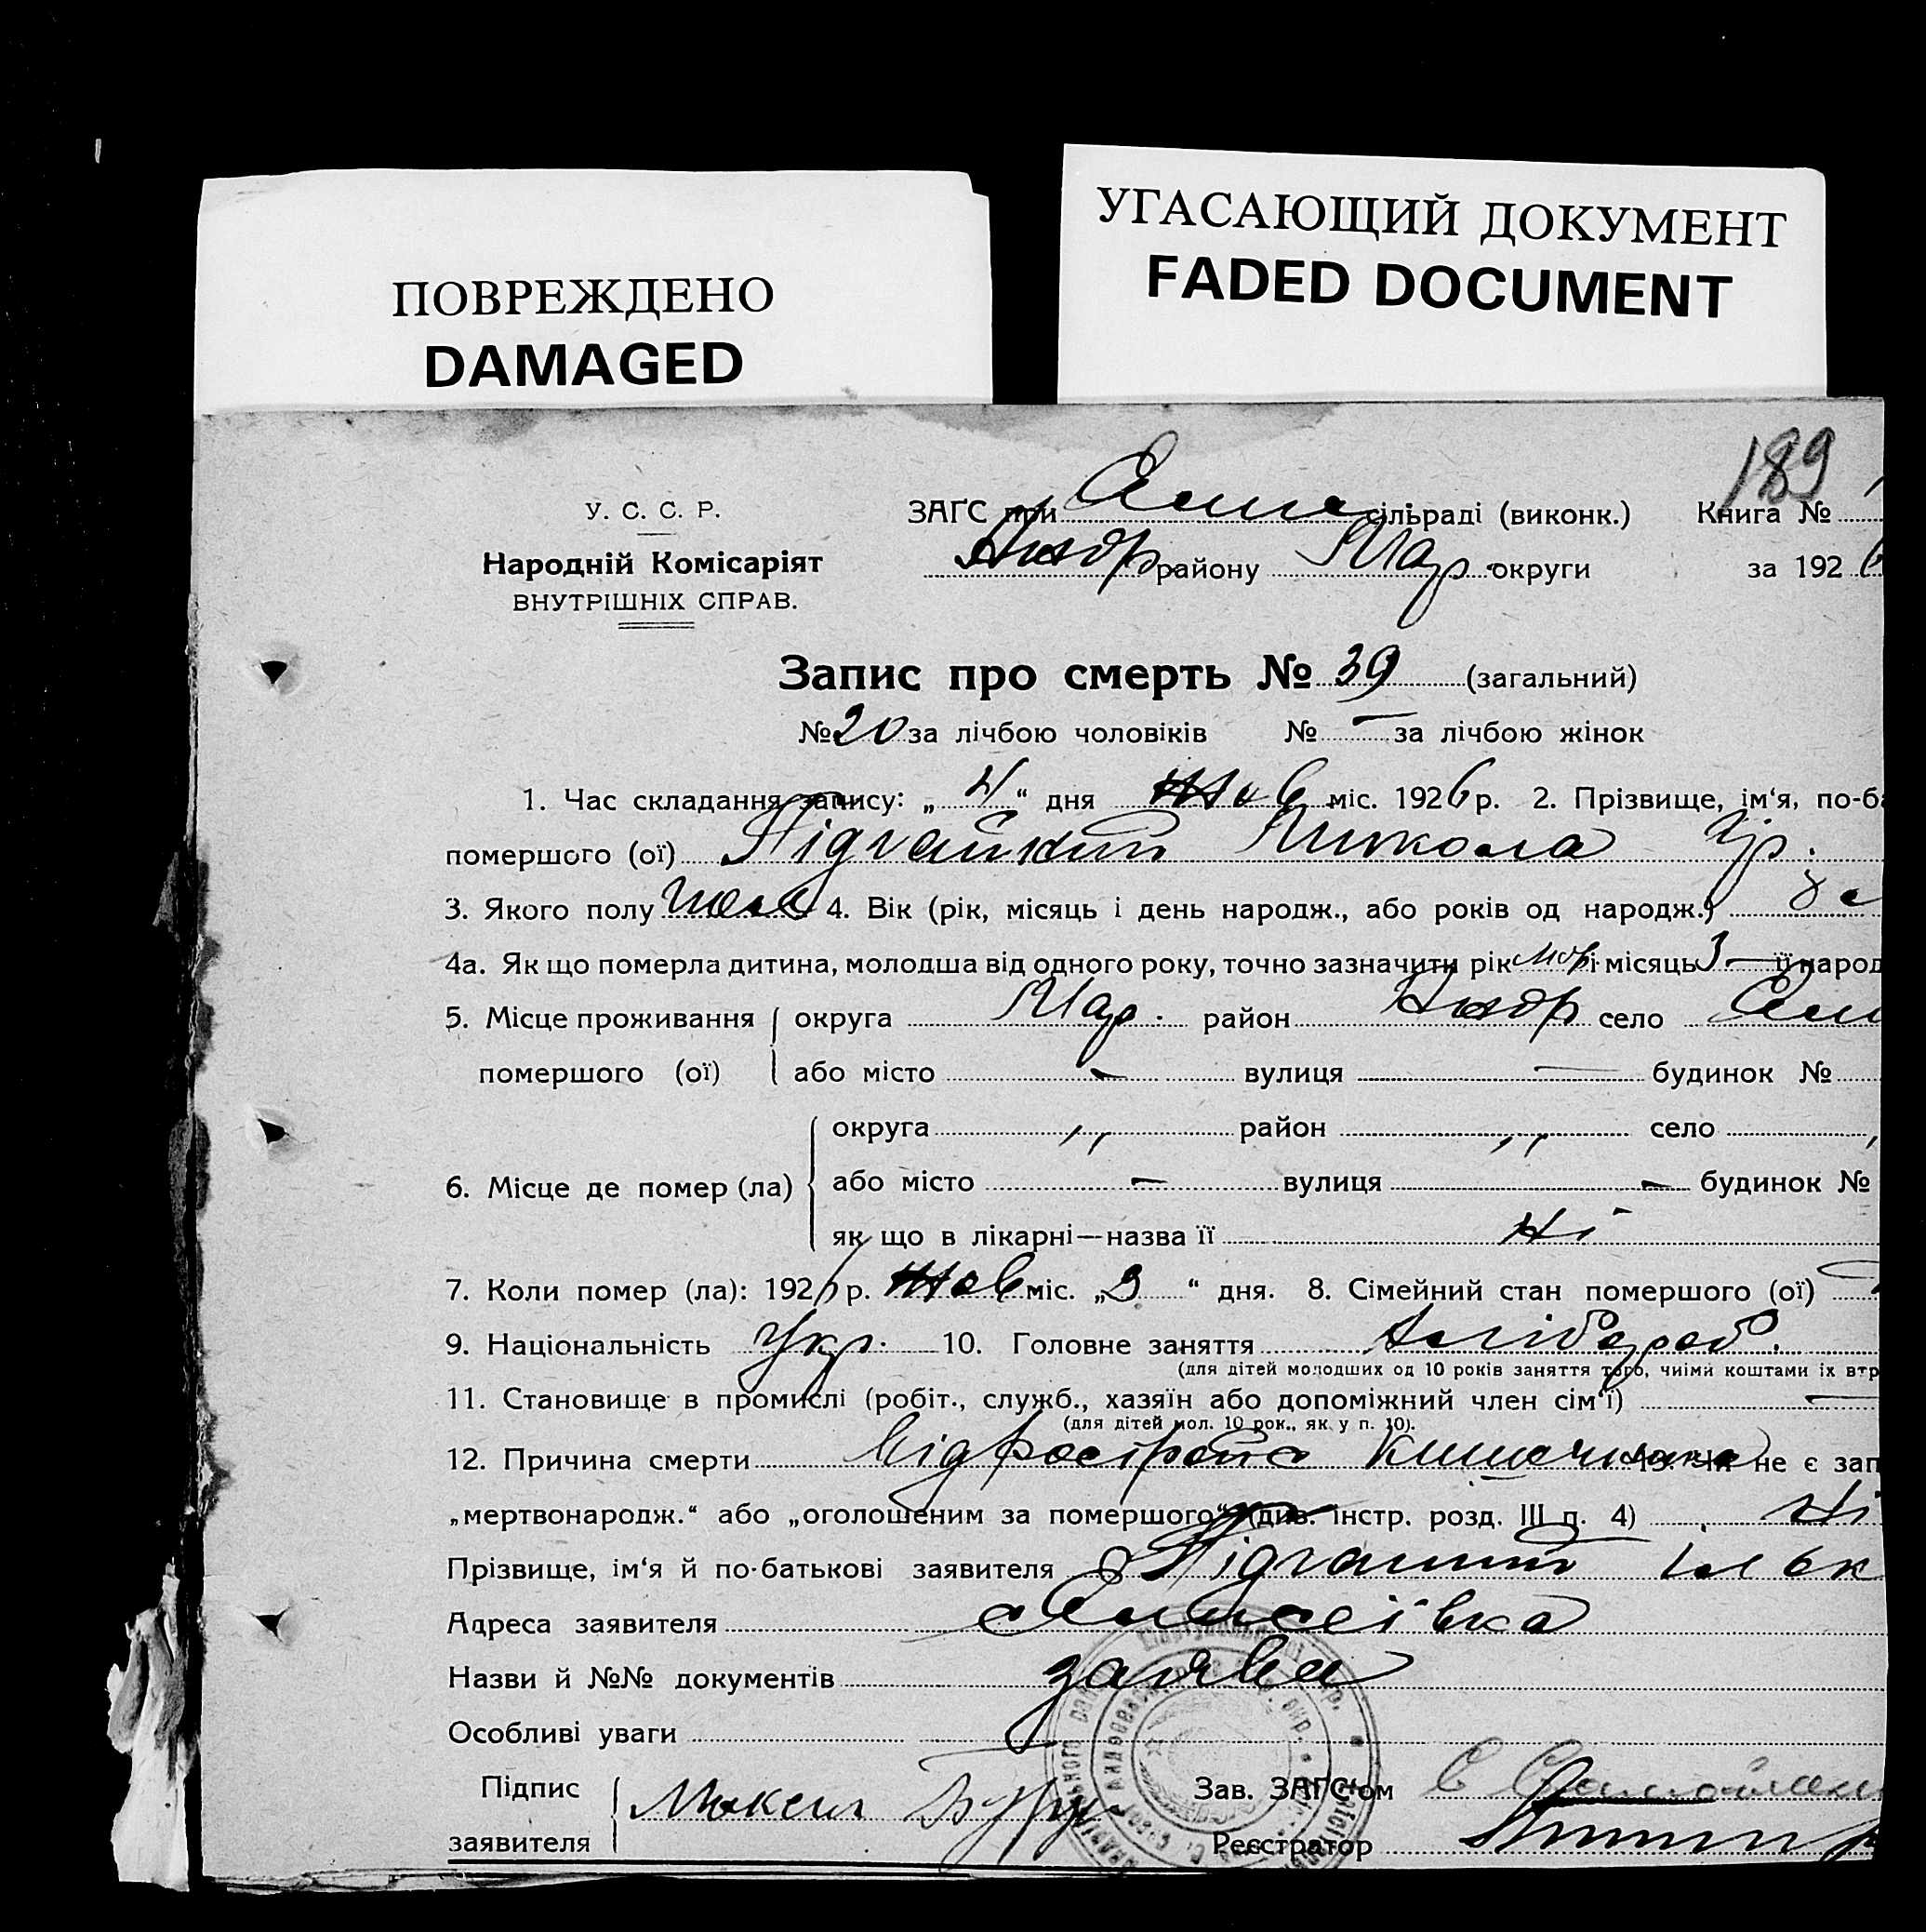 ПОВРЕЖДЕНО
DAMAGED
УГАСАЮЩИЙ ДОКУМЕНТ
FADED DOCUMENT
189
У. С. С. Р.
ЗАГС при сільраді (виконк.) Книга №
Народній Комісаріят
Андр. району Мар. округи за 1926
ВНУТРІШНІХ СПРАВ.
Запис про смерть № 39 (загальний)
№ 20 за лічбою чоловіків № — за лічбою жінок
1. Час складання запису: „ 4 “ дня Жов міс. 1926 р. 2. Прізвище, ім‘я, по-ба
помершого (ої) Микола Гр.
3. Якого полу чол 4. Вік (рік, місяць і день народж., або років од народж.)
4а. Як що померла дитина, молодша від одного року, точно зазначити рік і місяць її народ
5. Місце проживання округа Мар. район Андр село
помершого (ої) або місто — вулиця — будинок №
округа „ район „ село
6. Місце де помер (ла) або місто — вулиця — будинок №
як що в лікарні—назва її ні
7. Коли помер (ла): 1926 р. Жов міс. „3 “ дня. 8. Сімейний стан помершого (ої)
9. Національність Укр. 10. Головне заняття Хлібороб.
(для дітей молодших од 10 років заняття того, чиїми коштами їх втр
11. Становище в промислі (робіт., служб., хазяїн або допоміжний член сім‘ї) —
(для дітей мол. 10 рок., як у п. 10).
12. Причина смерти від не є зап
„мертвонародж.“ або „оголошеним за помершого“ (див. інстр. розд. III п. 4) ні
Прізвище, ім‘я й по-батькові заявителя
Адреса заявителя
Назви й №№ документів заява
Особливі уваги
Підпис Зав. ЗАГС‘ом
заявителя Реєстратор